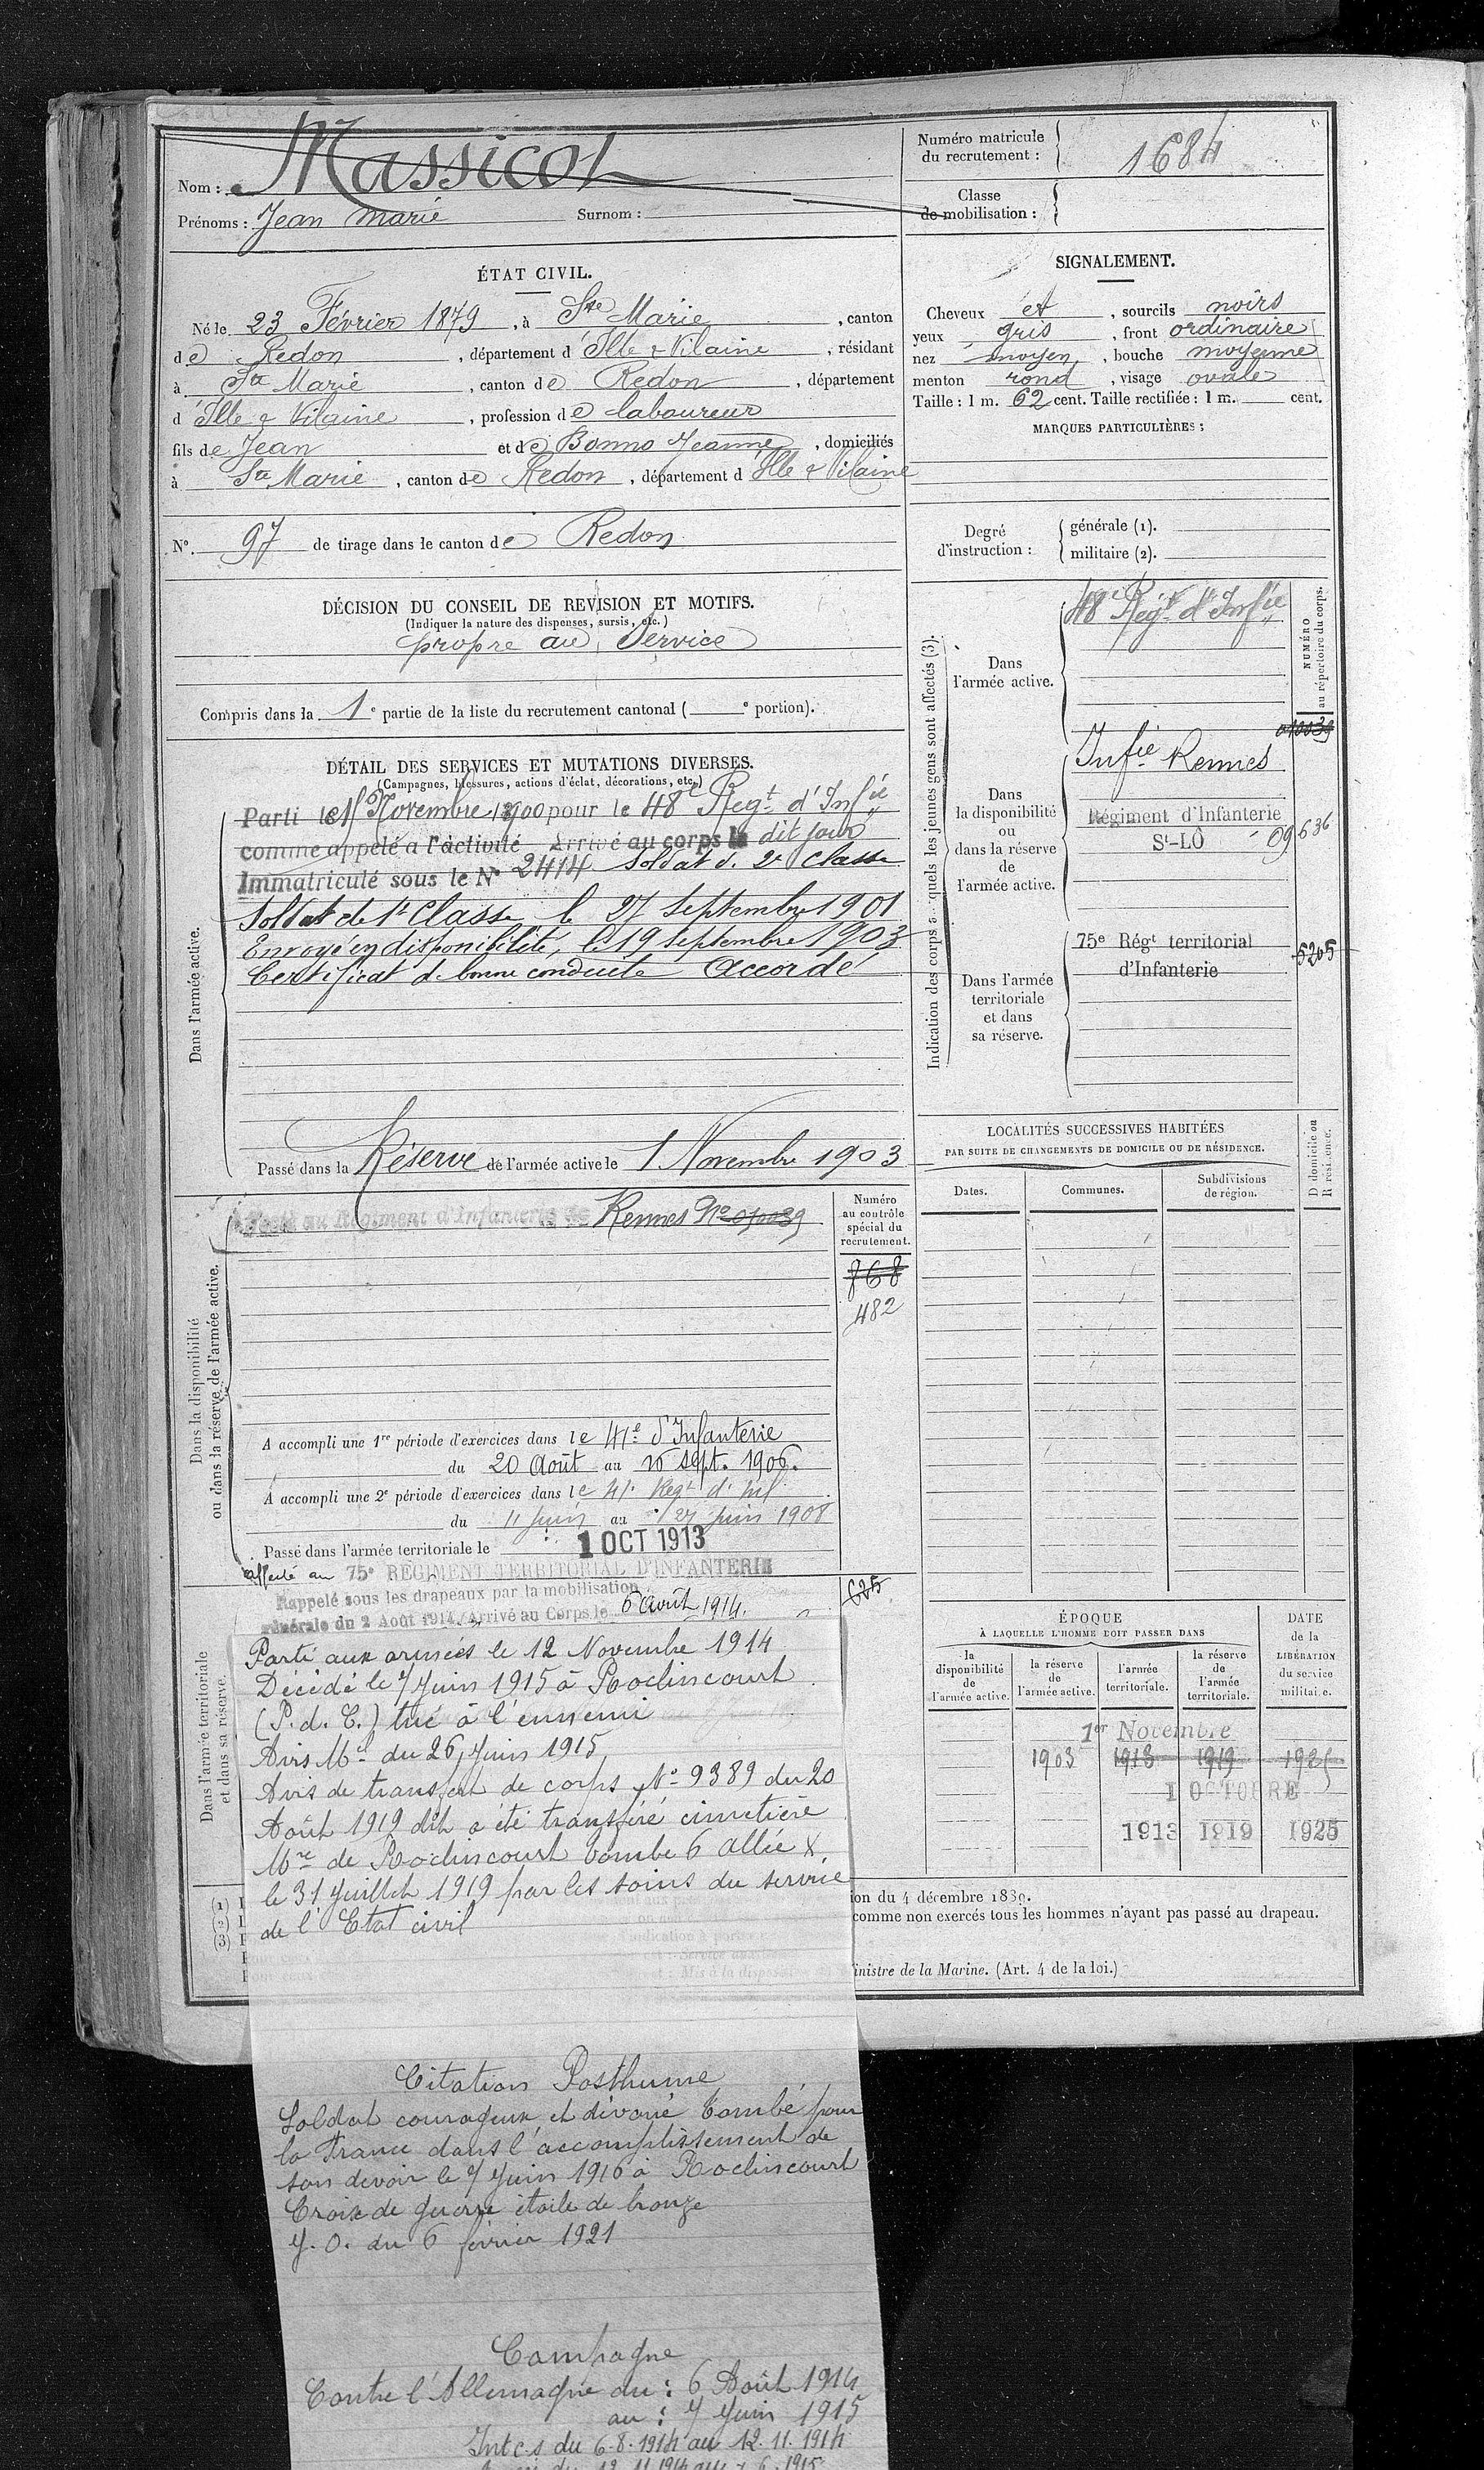 Nom : Massicot
Prénoms : Jean Marie Surnom :
Numéro matricule
du recrutement : 1684
Classe
de mobilisation :
ÉTAT CIVIL.
Né le 23 Février 1879, à Ste Marie, canton
de Redon, département d'Ille & Vilaine, résidant
à Ste Marie, canton de Redon, département
d'Ille & Vilaine, profession de laboureur
fils de Jean et de Bonno Jeanne, domiciliés
à Ste Marie, canton de Redon, département d'Ille & Vilaine
N° 97 de tirage dans le canton de Redon
SIGNALEMENT.
Cheveux et, sourcils noirs
yeux gris, front ordinaire
nez moyen, bouche moyenne
menton rond, visage ovale
Taille : 1 m. 62 cent. Taille rectifiée : 1 m. cent.
MARQUES PARTICULIÈRES :
Degré
d'instruction :
générale (1).
militaire (2).
DÉCISION DU CONSEIL DE REVISION ET MOTIFS.
(Indiquer la nature des dispenses, sursis, etc.)
propre au Service
Compris dans la 1e partie de la liste du recrutement cantonal ( e portion).
DÉTAIL DES SERVICES ET MUTATIONS DIVERSES.
(Campagnes, blessures, actions d'éclat, décorations, etc.)
Dans l'armée active.
Parti le 15 Novembre 1900 pour le 48e Regt d'Infie
comme appelé à l'activité Arrivé au corps le dit jour
Immatriculé sous le N° 2414 Soldat de 2e Classe
Soldat de 1e Classe le 27 Septembre 1901
Envoyé en disponibilité, le 19 Septembre 1903
Certificat de bonne conduite Accordé
Passé dans la Réserve de l'armée active le 1 Novembre 1903
Indication des corps auxquels les jeunes gens sont affectés (3).
NUMÉRO
au répertoire du corps.
Dans
l'armée active.
48e Régt d'Infie
Dans
la disponibilité
ou
dans la réserve
de
l'armée active.
Infie Rennes
010039
Régiment d'Infanterie
St-LÔ 09636
Dans l'armée
territoriale
et dans
sa réserve.
75e Régt territorial
d'Infanterie
5205
LOCALITÉS SUCCESSIVES HABITÉES
PAR SUITE DE CHANGEMENTS DE DOMICILE OU DE RÉSIDENCE.
Dates. Communes. Subdivisions
de région.
D domicile ou
R résidence.
Dans la disponibilité
ou dans la réserve de l'armée active.
Affecté au Régiment d'Infanterie de Rennes No 010039
Numéro
au contrôle
spécial du
recrutement.
768
482
A accompli une 1re période d'exercices dans le 41e d'Infanterie
du 20 Août au 16 Sept. 1906.
A accompli une 2e période d'exercices dans le 41e Regt d'inf
du 11 juin au 27 juin 1908
Passé dans l'armée territoriale le 1 OCT 1913
affecté au 75e REGIMENT TERRITORIAL D'INFANTERIE
625
Rappelé sous les drapeaux par la mobilisation
générale du 2 Août 1914. Arrivé au Corps le 6 août 1914.
Dans l'armée territoriale
et dans sa réserve.
Parti aux armées le 12 Novembre 1914
Décédé le 7 Juin 1915 à Roclincourt
(P. d. C.) tué à l'ennemi
Avis Mel du 26 Juin 1915
Avis de transfert de corps No 9389 du 20
Août 1919 dit a été transféré cimetière
Mre de Roclincourt tombe 6 allée X
le 31 Juillet 1919 par les soins du service
de l'Etat civil
ÉPOQUE
À LAQUELLE L'HOMME DOIT PASSER DANS
DATE
de la
LIBÉRATION
du service
militaire.
la
disponibilité
de
l'armée active.
la réserve
de
l'armée active.
l'armée
territoriale.
la réserve
de
l'armée
territoriale.
1er Novembre
1903 1913 1919 1925
1 OCTOBRE
1913 1919 1925
(1)
(2)
(3)
ion du 4 décembre 1889.
comme non exercés tous les hommes n'ayant pas passé au drapeau.
inistre de la Marine. (Art. 4 de la loi.)
Citation Posthume
Soldat courageux et dévoué tombé pour
la France dans l'accomplissement de
son devoir le 7 Juin 1916 à Roclincourt
Croix de guerre étoile de bronze
J. O. du 6 février 1921
Campagne
Contre l'Allemagne du : 6 Août 1914
au : 7 Juin 1915
Int c.s du 6.8.1914 au 12.11.1914